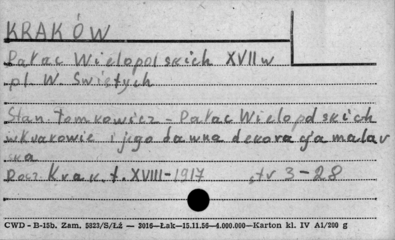 KRAKÓW
Pałac Wielopolskich XVII w
pl. W. Świętych
Stan. Tomkowicz - Pałac Wielopolskich
w Krakowie i jego dawna dekoracja malar
ska
Rocz. Krak. t. XVIII - 1917 str 3-28
CWD - B-15b. Zam. 5823/S/Łż — 3016—Łak—15.11.56—4.000.000—Karton kl. IV A1/200 g